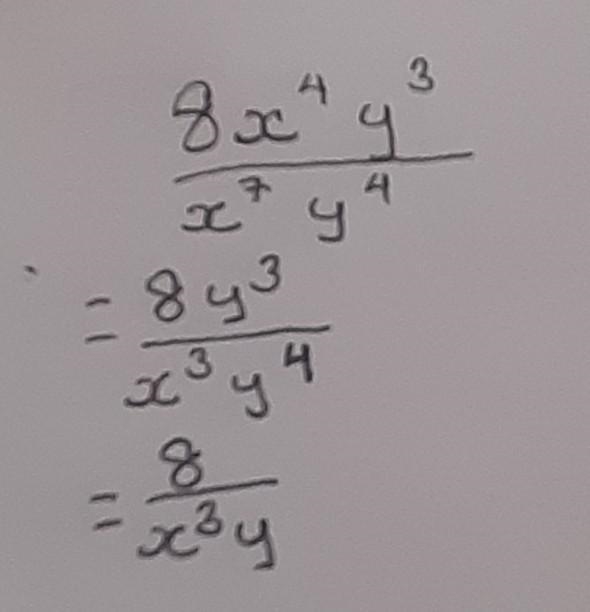 8x⁴ y³
x⁷ y⁴
= 8y³
x³y⁴
= 8
x³y